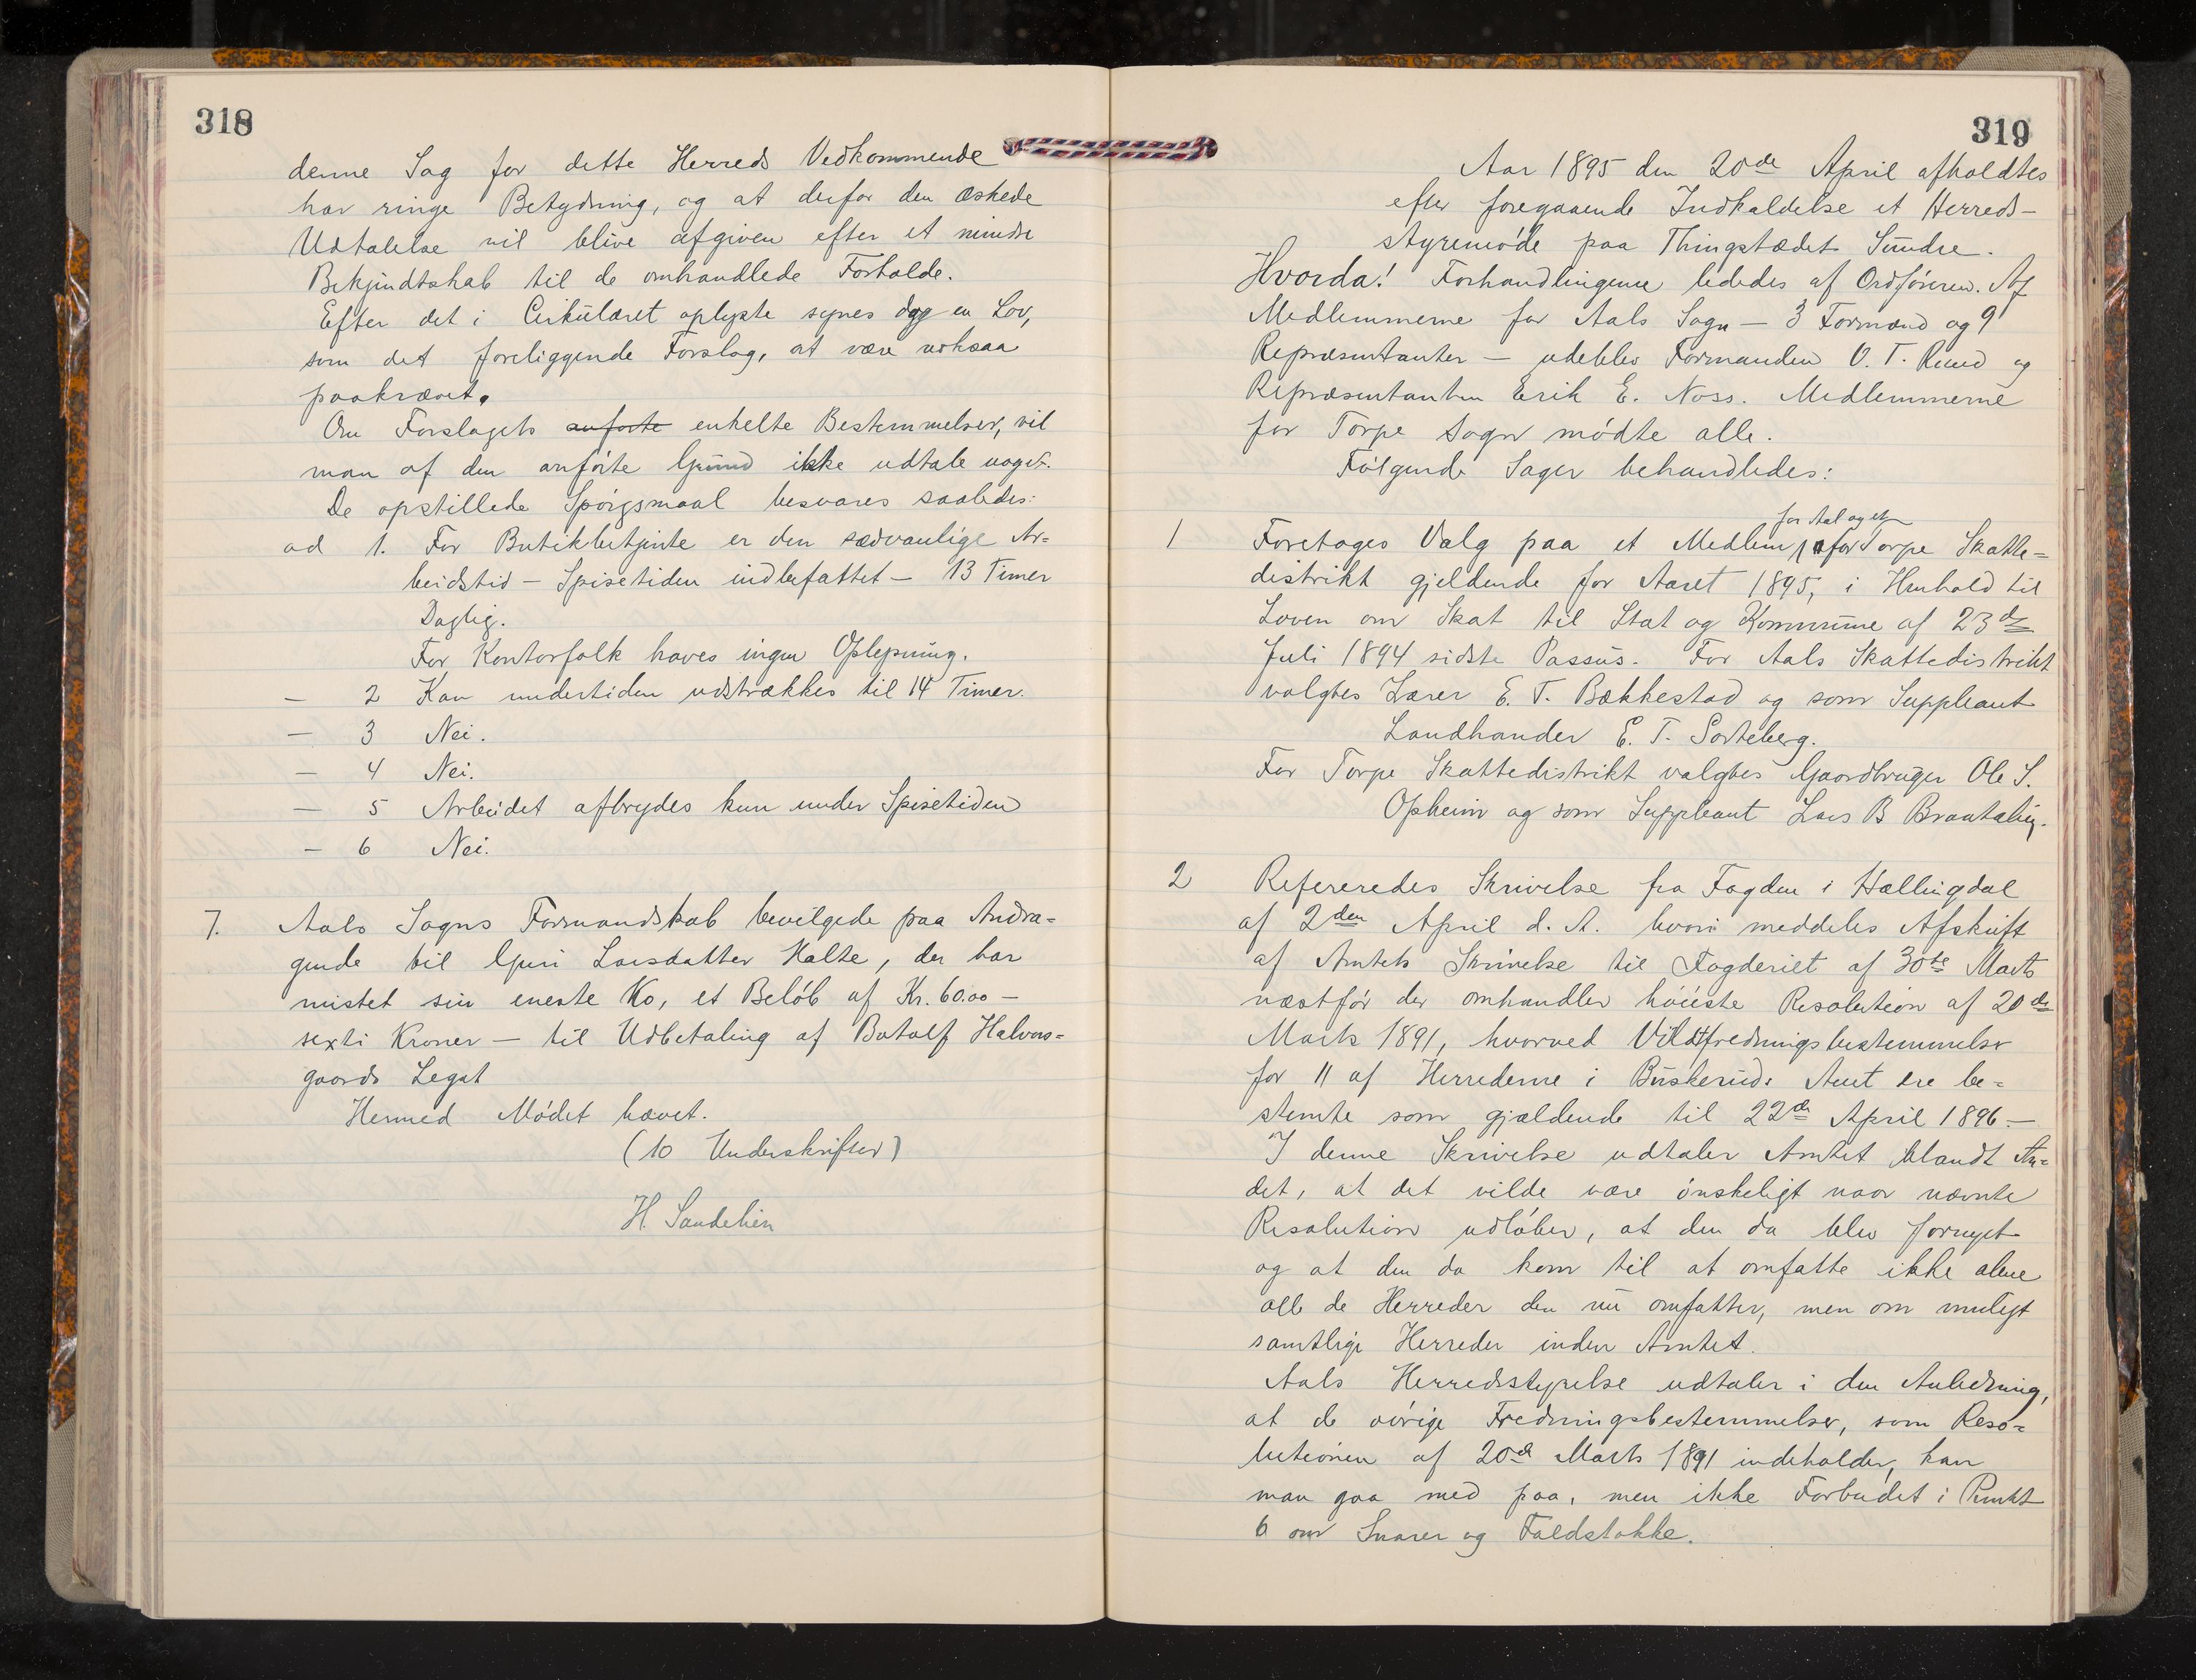 318
denne Sag for dette Herreds Vedkommende
har ringe Betydning, og at derfor den æskede
Udtalelse vil blive afgiven efter et mindre
Bekjendtskab til de omhandlede Forholde.
Efter det i Cirkulæret oplyste synes dog en Lov,
som det foreliggende Forslag, at være
paakrævet.
Om Forslagets anførte enkelte Bestemmelser, vil
man af den anførte Grund ikke udtale noget.
De opstillede Spørgsmaal besvares saaledes:
ad 1. For Butikbetjente er den sædvanlige Ar=
beidstid – Spisetiden indbefattet – 13 Timer
Daglig.
For Kontorfolk haves ingen Oplysning.
— 2 Kan undertiden udstrækkes til 14 Timer.
— 3 Nei.
— 4 Nei.
— 5 Arbeidet afbrydes kun under Spisetiden
— 6 Nei.
7. Aals Sogns Formandskab bevilgede paa Andra=
gende til Guri Larsdatter Halte, der har
mistet sin eneste Ko, et Beløb af Kr. 60.00 –
sexti Kroner – til Udbetaling af Botolf Halvors=
gaards Legat
Hermed Mødet hævet.
(10 Underskrifter)
H. Sandelien
319
Aar 1895 den 20de April afholdtes
efter foregaaende Indkaldelse et Herreds-
styremøde paa Thingstædet Sundre.
Hvorda! Forhandlingerne lededes af Ordføreren. Af
Medlemmerne for Aals Sogn – 3 Formænd og 9
Repræsentanter – udeblev Formanden O. T. Ruud og
Repræsentanten Erik E. Noss. Medlemmerne
for Torpe Sogn mødte alle.
Følgende Sager behandledes:
for Aal og et
1 Foretages Valg paa et Medlem for Torpe Skatte=
distrikt gjeldende for Aaret 1895, i Henhold til
Loven om Skat til Stat og Kommune af 23de
Juli 1894 sidste Passus. For Aals Skattedistrikt
valgtes Lærer E. T. Bækkestad og som Suppleant
Landhandler E. T. Sorteberg.
For Torpe Skattedistrikt valgtes Gaardbruger Ole S.
Opheim og som Suppleant Lars B
2 Refereredes Skrivelse fra Fogden i Hallingdal
af 2den April d. A. hvori meddeles Afskrift
af Amtets Skrivelse til Fogderiet af 30te Marts
næstfør der omhandler høieste Resolution af 20de
Marts 1891, hvorved Vildtfredningsbestemmelser
for 11 af Herrederne i Buskeruds Amt ere be=
stemte som gjældende til 22de April 1896. –
I denne Skrivelse udtaler Amtet blandt An=
det, at det vilde være ønskeligt naar nævnte
Resolution udløber, at den da blev fornyet
og at den da kom til at omfatte ikke alene
alle de Herreder den nu omfatter, men om muligt
samtlige Herreder inden Amtet.
Aals Herredsstyrelse udtaler i den Anledning,
at de øvrige Fredningsbestemmelser, som Reso=
lutionen af 20de Marts 1891 indeholder, kan
man gaa med paa, men ikke Forbudet i Punkt
6 om Snarer og Faldstokke.